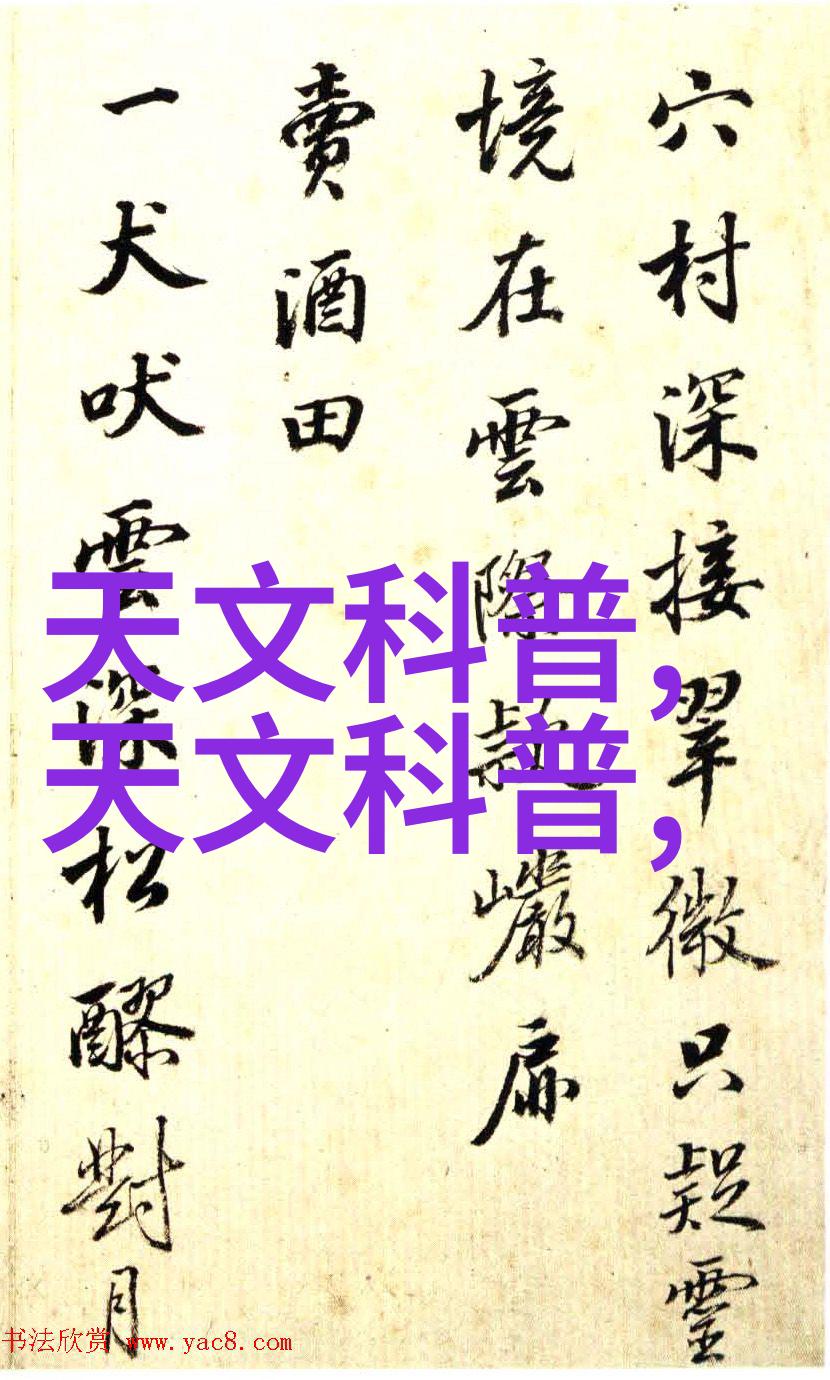 穴村深接翠微只疑靈
境在雲際敲巖扉
賣酒田
一犬吠雲深松醪對月
天文科普,
天文科普,
书法欣赏 www.yac8.com